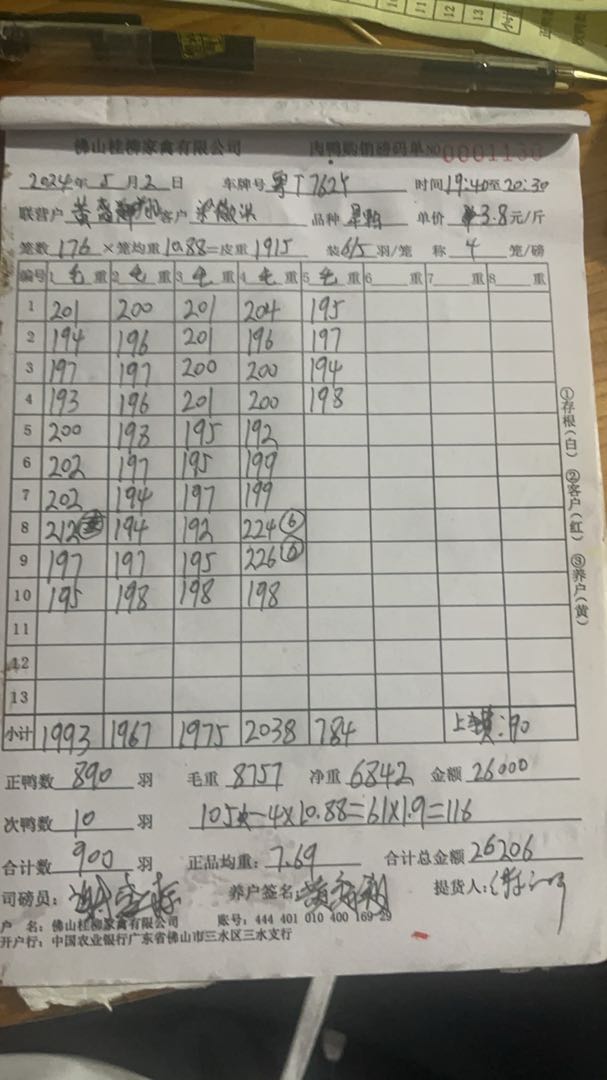 佛山桂柳家禽有限公司 肉鸭购销磅码单 NO 0001130
2024年5月2日 车牌号 粤T7625 时间19:40至20:30
联营户 黄 客户 品种 单价 ¥3.8元/斤
笼数176×笼均重10.88=皮重1915 装6/5羽/笼 称4笼/磅
编号 1毛重 2毛重 3毛重 4毛重 5毛重 6重 7重 8重
1 201 200 201 204 195
2 194 196 201 196 197
3 197 197 200 200 194
4 193 196 201 200 198
5 200 198 195 192
6 202 197 195 199
7 202 194 197 199
8 212 194 192 224⑥
9 197 197 195 226⑥
10 195 198 198 198
11
12
13
小计 1993 1967 1975 2038 784 上车费:90
正鸭数890羽 毛重8757 净重6842 金额26000
次鸭数10羽 105-4×10.88=61×1.9=116
合计数900羽 正品均重:7.69 合计总金额26206
司磅员: 养户签名: 提货人:
户 名:佛山桂柳家禽有限公司 账号:444 401 010 400 169 29
开户行:中国农业银行广东省佛山市三水区三水支行
①存根(白) ②客户(红) ③养户(黄)